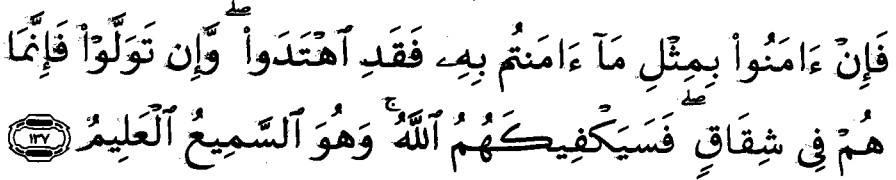 فَإِنْ ءَامَنُوا۟ بِمِثْلِ مَآ ءَامَنتُم بِهِۦ فَقَدِ ٱهْتَدَوا۟ ۖ وَّإِن تَوَلَّوْا۟ فَإِنَّمَا
هُمْ فِى شِقَاقٍ ۖ فَسَيَكْفِيكَهُمُ ٱللَّهُ ۚ وَهُوَ ٱلسَّمِيعُ ٱلْعَلِيمُ ١٣٧